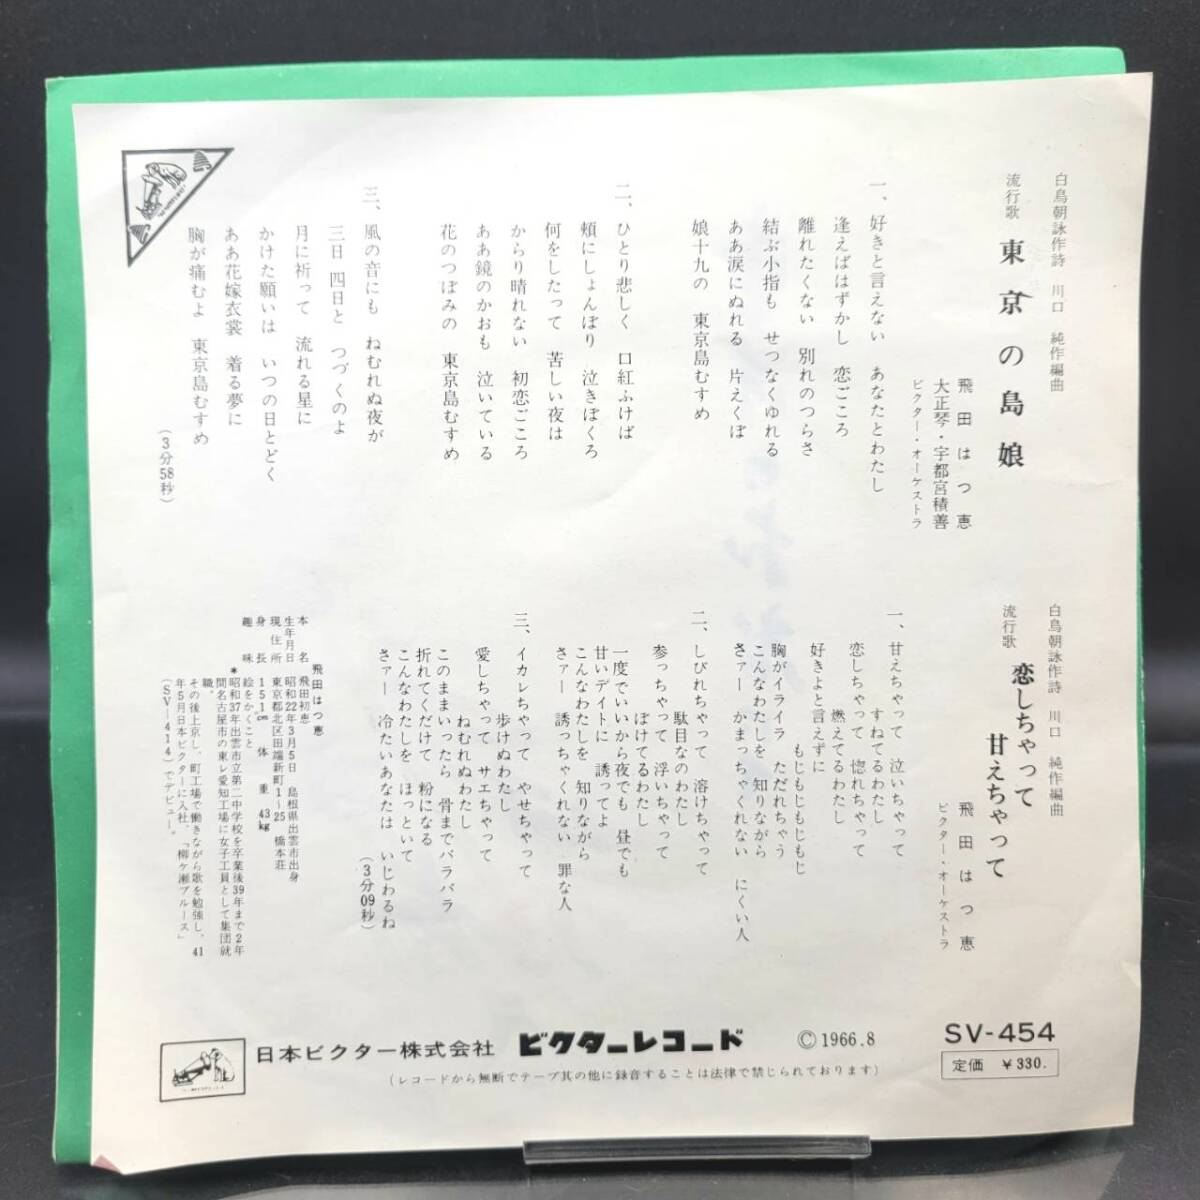 白鳥朝詠作詩 川口 純作編曲
流行歌 東京の島娘
飛田はつ恵
大正琴・宇都宮積善
ビクター・オーケストラ
一、好きと言えない あなたとわたし
逢えばはずかし 恋ごころ
離れたくない 別れのつらさ
結ぶ小指も せつなくゆれる
ああ涙にぬれる 片えくぼ
娘十九の 東京島むすめ
二、ひとり悲しく 口紅ふけば
頬にしょんぼり 泣きぼくろ
何をしたって 苦しい夜は
からり晴れない 初恋ごころ
ああ鏡のかおも 泣いている
花のつぼみの 東京島むすめ
三、風の音にも ねむれぬ夜が
三日 四日と つづくのよ
月に祈って 流れる星に
かけた願いは いつの日とどく
ああ花嫁衣裳 着る夢に
胸が痛むよ 東京島むすめ
(3分58秒)
白鳥朝詠作詩 川口 純作編曲
流行歌 恋しちゃって
甘えちゃって
飛田はつ恵
ビクター・オーケストラ
一、甘えちゃって 泣いちゃって
すねてるわたし
恋しちゃって 惚れちゃって
燃えてるわたし
好きよと言えずに
もじもじもじもじ
胸がイライラ ただれちゃう
こんなわたしを 知りながら
さァー かまっちゃくれない にくい人
二、しびれちゃって 溶けちゃって
駄目なのわたし
参っちゃって 浮いちゃって
ぼけてるわたし
一度でいいから夜でも 昼でも
甘いデイトに 誘ってよ
こんなわたしを 知りながら
さァー 誘っちゃくれない 罪な人
三、イカレちゃって やせちゃって
歩けぬわたし
愛しちゃって サエちゃって
ねむれぬわたし
このままいったら 骨までバラバラ
折れてくだけて 粉になる
こんなわたしを ほっといて
さァー 冷たいあなたは いじわるね
(3分09秒)
飛田はつ恵
本名 飛田初恵
生年月日 昭和22年3月5日 島根県出雲市出身
現住所 東京都北区田端新町1~25 橋本荘
身長 151cm 体重 43kg
趣味 絵をかくこと
*昭和37年出雲市立第二中学校を卒業後39年まで2年
間名古屋市の東レ愛知工場に女子工員として集団就
職。
その後上京し、町工場で働きながら歌を勉強し、41
年5月日本ビクターに入社、「柳ヶ瀬ブルース」
(SV-414)でデビュー。
日本ビクター株式会社 ビクターレコード Ⓒ1966.8 SV-454
定価 ¥330.
(レコードから無断でテープ其の他に録音することは法律で禁じられております)